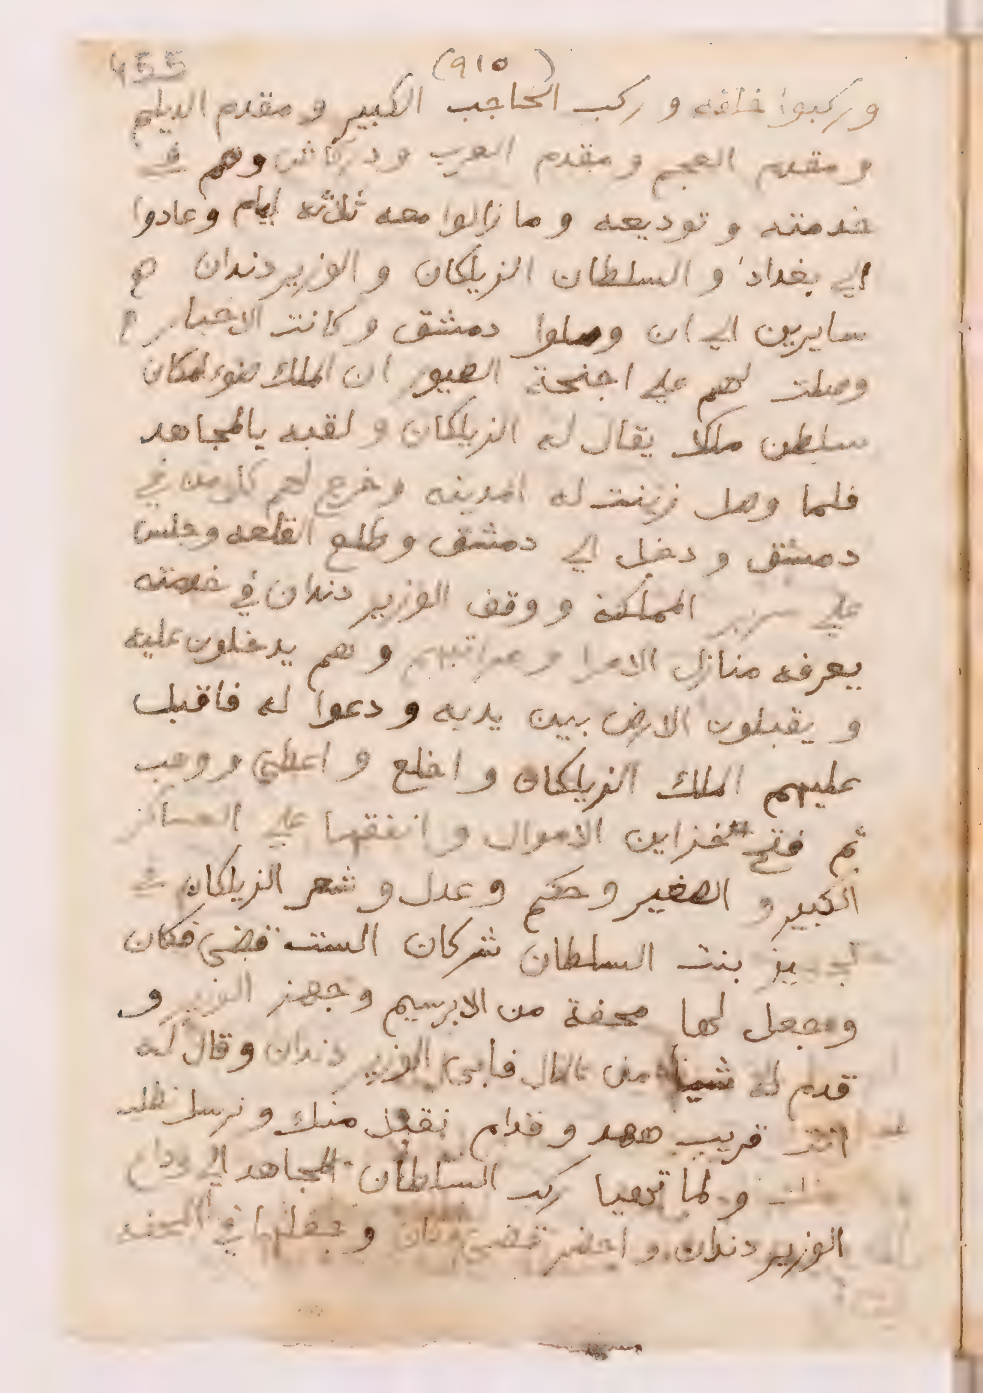 455
(٩١٥)
وركبوا خلفه و ركب الحاجب الكبير و مقدم الديلم
و مقدم العجم و مقدم العرب و دركاش وهم في
خدمته و توديعه و ما زالوا معه ثلاثه ايام وعادوا
الي بغداد و السلطان الزيلكان و الوزير دندان
سايرين الي ان وصلوا دمشق و كانت الاخبار
وصلت لهم علي اجنحة الطيور ان الملك ضوء المكان
سلطن ملكا يقال له الزيلكان و لقبه بالمجاهد
فلما وصل زينت له المدينه و خرج لهم كل من في
دمشق و دخل الي دمشق و طلع القلعه وجلس
علي سرير المملكة و وقف الوزير دندان في خدمته
يعرفه منازل الامرا و مراتبهم و هم يدخلون عليه
و يقبلون الارض بين يديه و دعوا له فاقبل
عليهم الملك الزيلكان و اخلع و اعطي و وهب
ثم فتح خزاين الاموال و انفقها علي العساكر
الكبير و الصغير و حكم و عدل و شعر الزيلكان في
تجهيز بنت السلطان شركان الست قضي فكان
وجعل لها محفة من الابرسيم و جهز الوزير و
قدم له شيئا من المال فابي الوزير دندان وقال له
انت قريب عهد و قدام نقبل منك و نرسل نطلب
منك و لما تهيا ركب السلطان المجاهد الي وداع
الوزير دندان و احضر قضي فكان و جعلها في المحفه